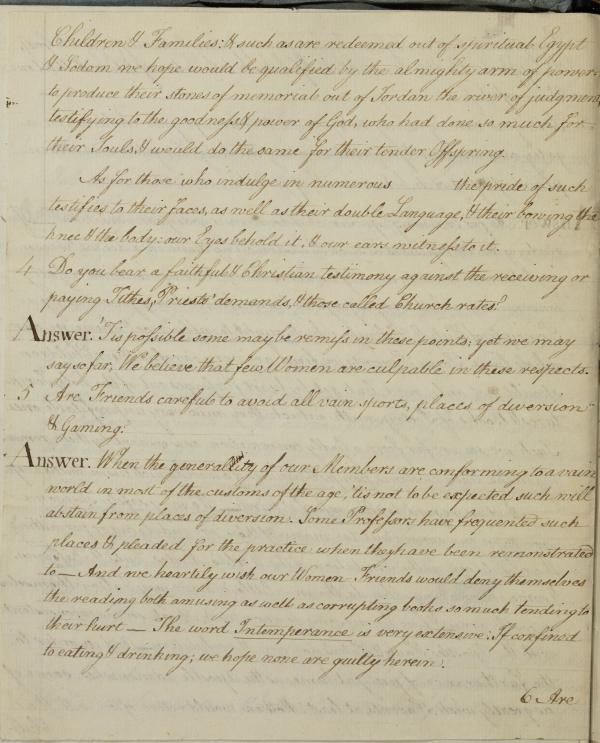 Children & Families: & such as are redeemed out of spiritual Egypt
& Sodom we hope would be qualefied by the almighty arm of power
to produce their stones of memorial out of Jordan the river of judgment,
testifying to the goodness & power of God, who had done so much for
their Souls, & would do the same for their tender Offspring.
As for those who indulge in numerous the pride of such
testifies to their faces, as well as their double Language, & their bowing the
knee & the body: our Eyes behold it, & our ears witness to it.
4 Do you bear a faithful & Christian testimony against the receiving or
paying Tithes, Priests' demands, & those called Church rates?
Answer. 'Tis possible some may be remiss in these points; yet we may
say so far, We believe that few Women are culpable in these respects.
5 Are Friends careful to avoid all vain sports, places of diversion
& Gaming:
Answer. When the generality of our Members are conforming to a vain
world in most of the customs of the age, 'tis not to be expected such will
abstain from places of diversion. Some Professors have frequented such
places & pleaded for the practice when they have been remonstrated
to — And we heartily wish our Women Friends would deny themselves
the reading both amusing as well as corrupting books so much tending to
their hurt — The word Intemperance is very extensive: If confined
to eating & drinking; we hope none are guilty herein.
6 Are